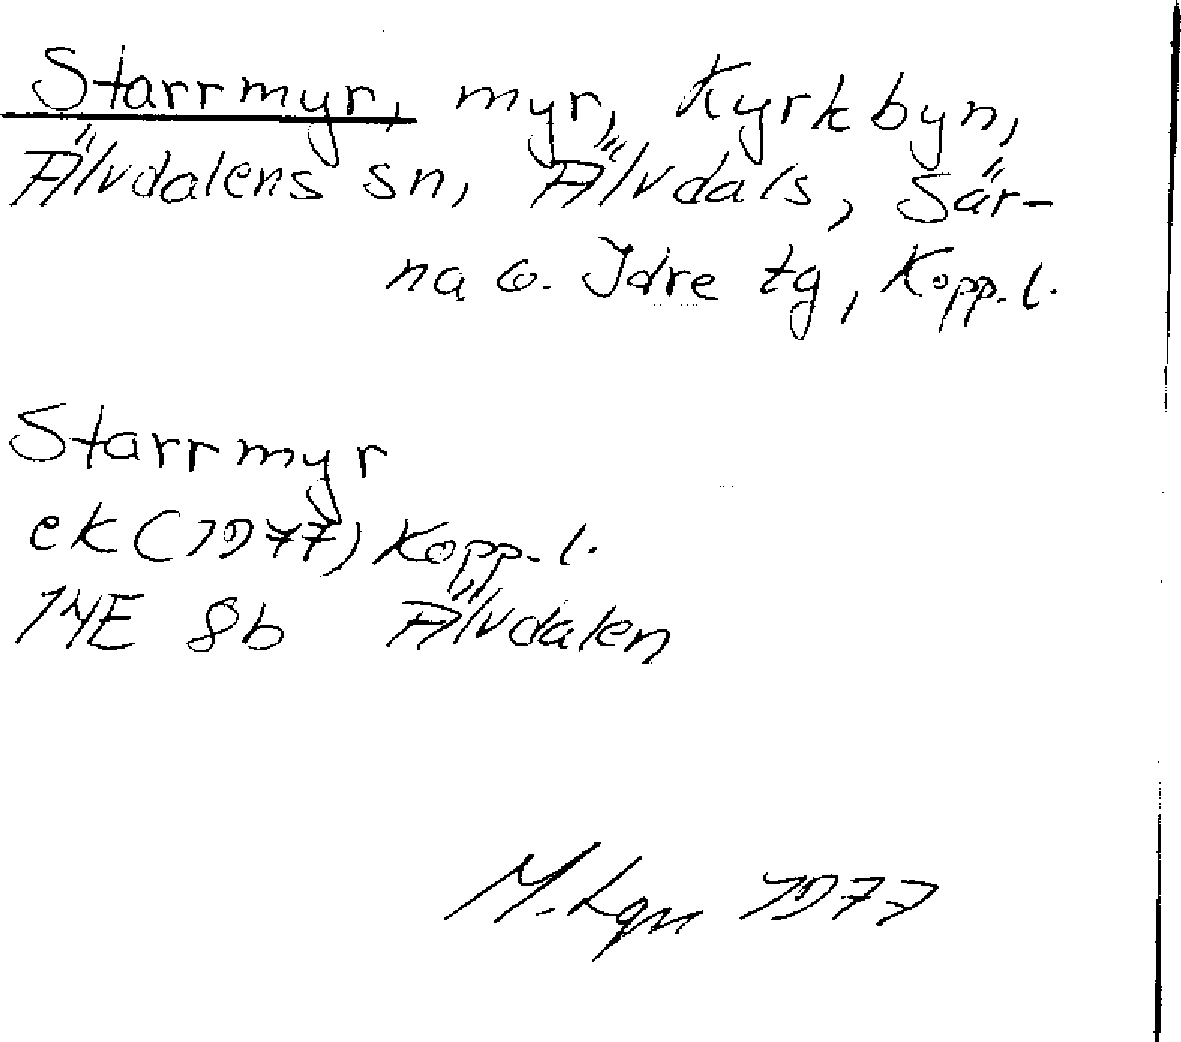 Starrmyr, myr, Kyrkbyn,
Älvdalens sn, Älvdals, Sär-
na o. Idre tg, Kopp. l.
Starrmyr
ek (1977) Kopp. l.
14E 8b Älvdalen
M. Lgn 1977